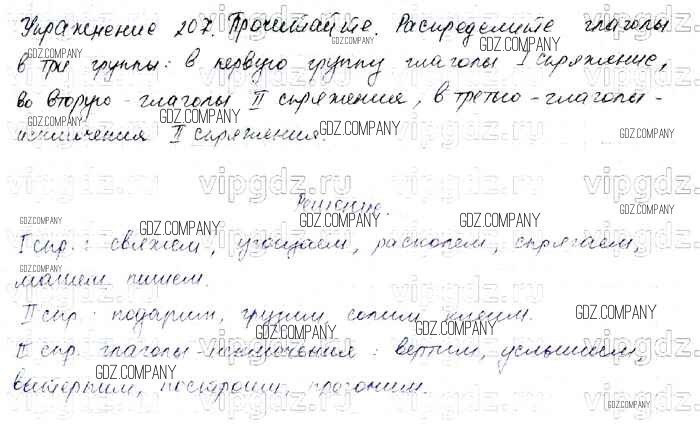 Упражнение 207. Прочитайте. Распределите глаголы
в три группы: в первую группу глаголы I спряжение,
во вторую - глаголы II спряжения, в третью - глаголы -
исключения II спряжения.
Решение.
I спр.: свяжем, угощаем, расколем, спрягаем,
машем пишем.
II спр. подарим, грузим, солим, клеим.
II спр. глаголы исключения: вертим, услышием,
вытерпим, построим, прогоним.